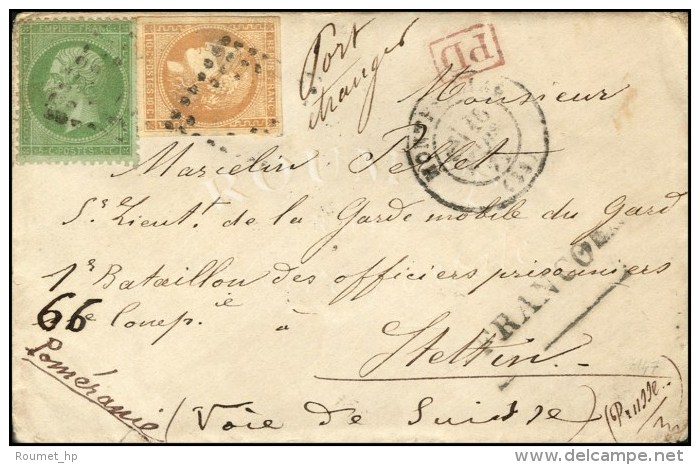 EMPIRE FRANC
5 C POSTES 5 C
Port
étranger
PD
Monsieur
Marcelin Pellet
Ss Lieut. de la Garde mobile du Gard
1er Bataillon des officiers prisonniers
66
Comp.ie à
Stettin
FRANCO
Poméranie
(Voie de Suisse)
(Prusse)
Roumet_hp
delcampe.net